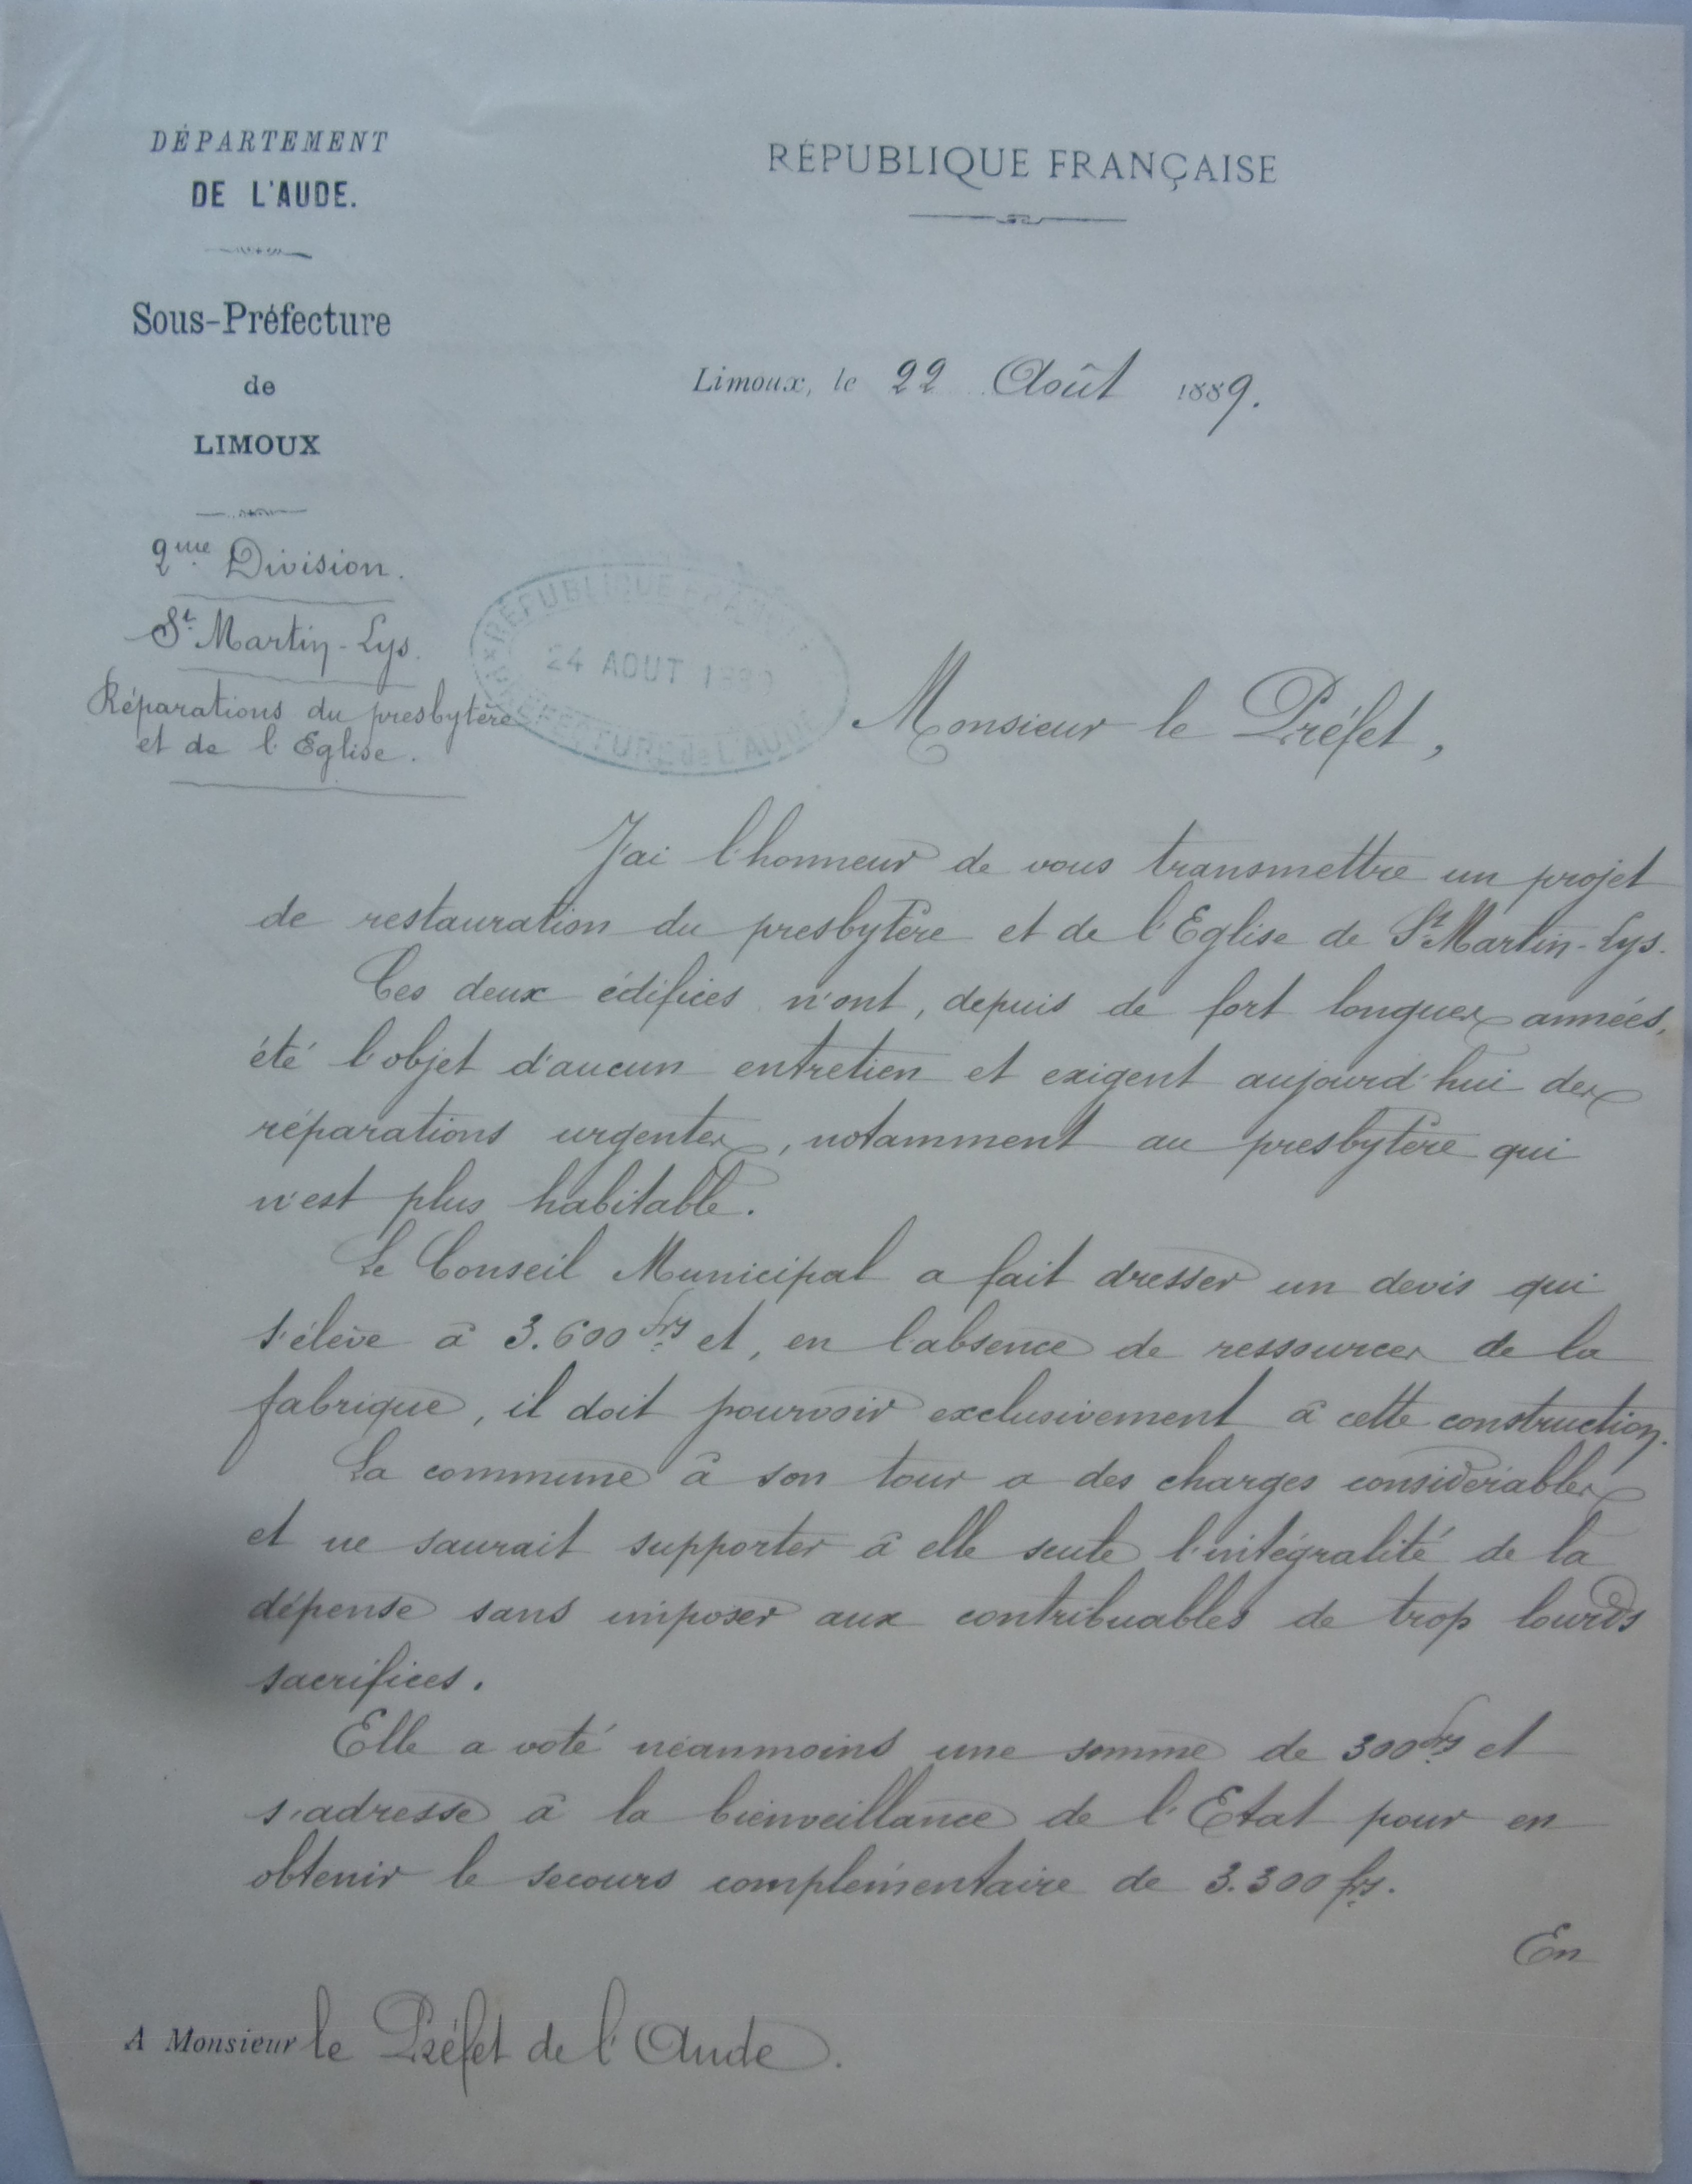 DÉPARTEMENT
DE L'AUDE.
Sous-Préfecture
de
LIMOUX
2me Division.
St Martin-Lys.
Réparations du presbytère
et de l'Eglise.
RÉPUBLIQUE FRANÇAISE
Limoux, le 22 Août 1889.
RÉPUBLIQUE FRANÇAISE
24 AOUT 1889
PRÉFECTURE de L'AUDE
Monsieur le Préfet,
J'ai l'honneur de vous transmettre un projet
de restauration du presbytère et de l'Eglise de St Martin-Lys.
Ces deux édifices n'ont, depuis de fort longues années,
été l'objet d'aucun entretien et exigent aujourd'hui des
réparations urgentes, notamment au presbytère qui
n'est plus habitable.
Le Conseil Municipal a fait dresser un devis qui
s'élève à 3.600 frs et, en l'absence de ressources de la
fabrique, il doit pourvoir exclusivement à cette construction.
La commune à son tour a des charges considérables
et ne saurait supporter à elle seule l'intégralité de la
dépense sans imposer aux contribuables de trop lourds
sacrifices.
Elle a voté néanmoins une somme de 300 frs et
s'adresse à la bienveillance de l'Etat pour en
obtenir le secours complémentaire de 3.300 frs.
En
A Monsieur le Préfet de l'Aude.